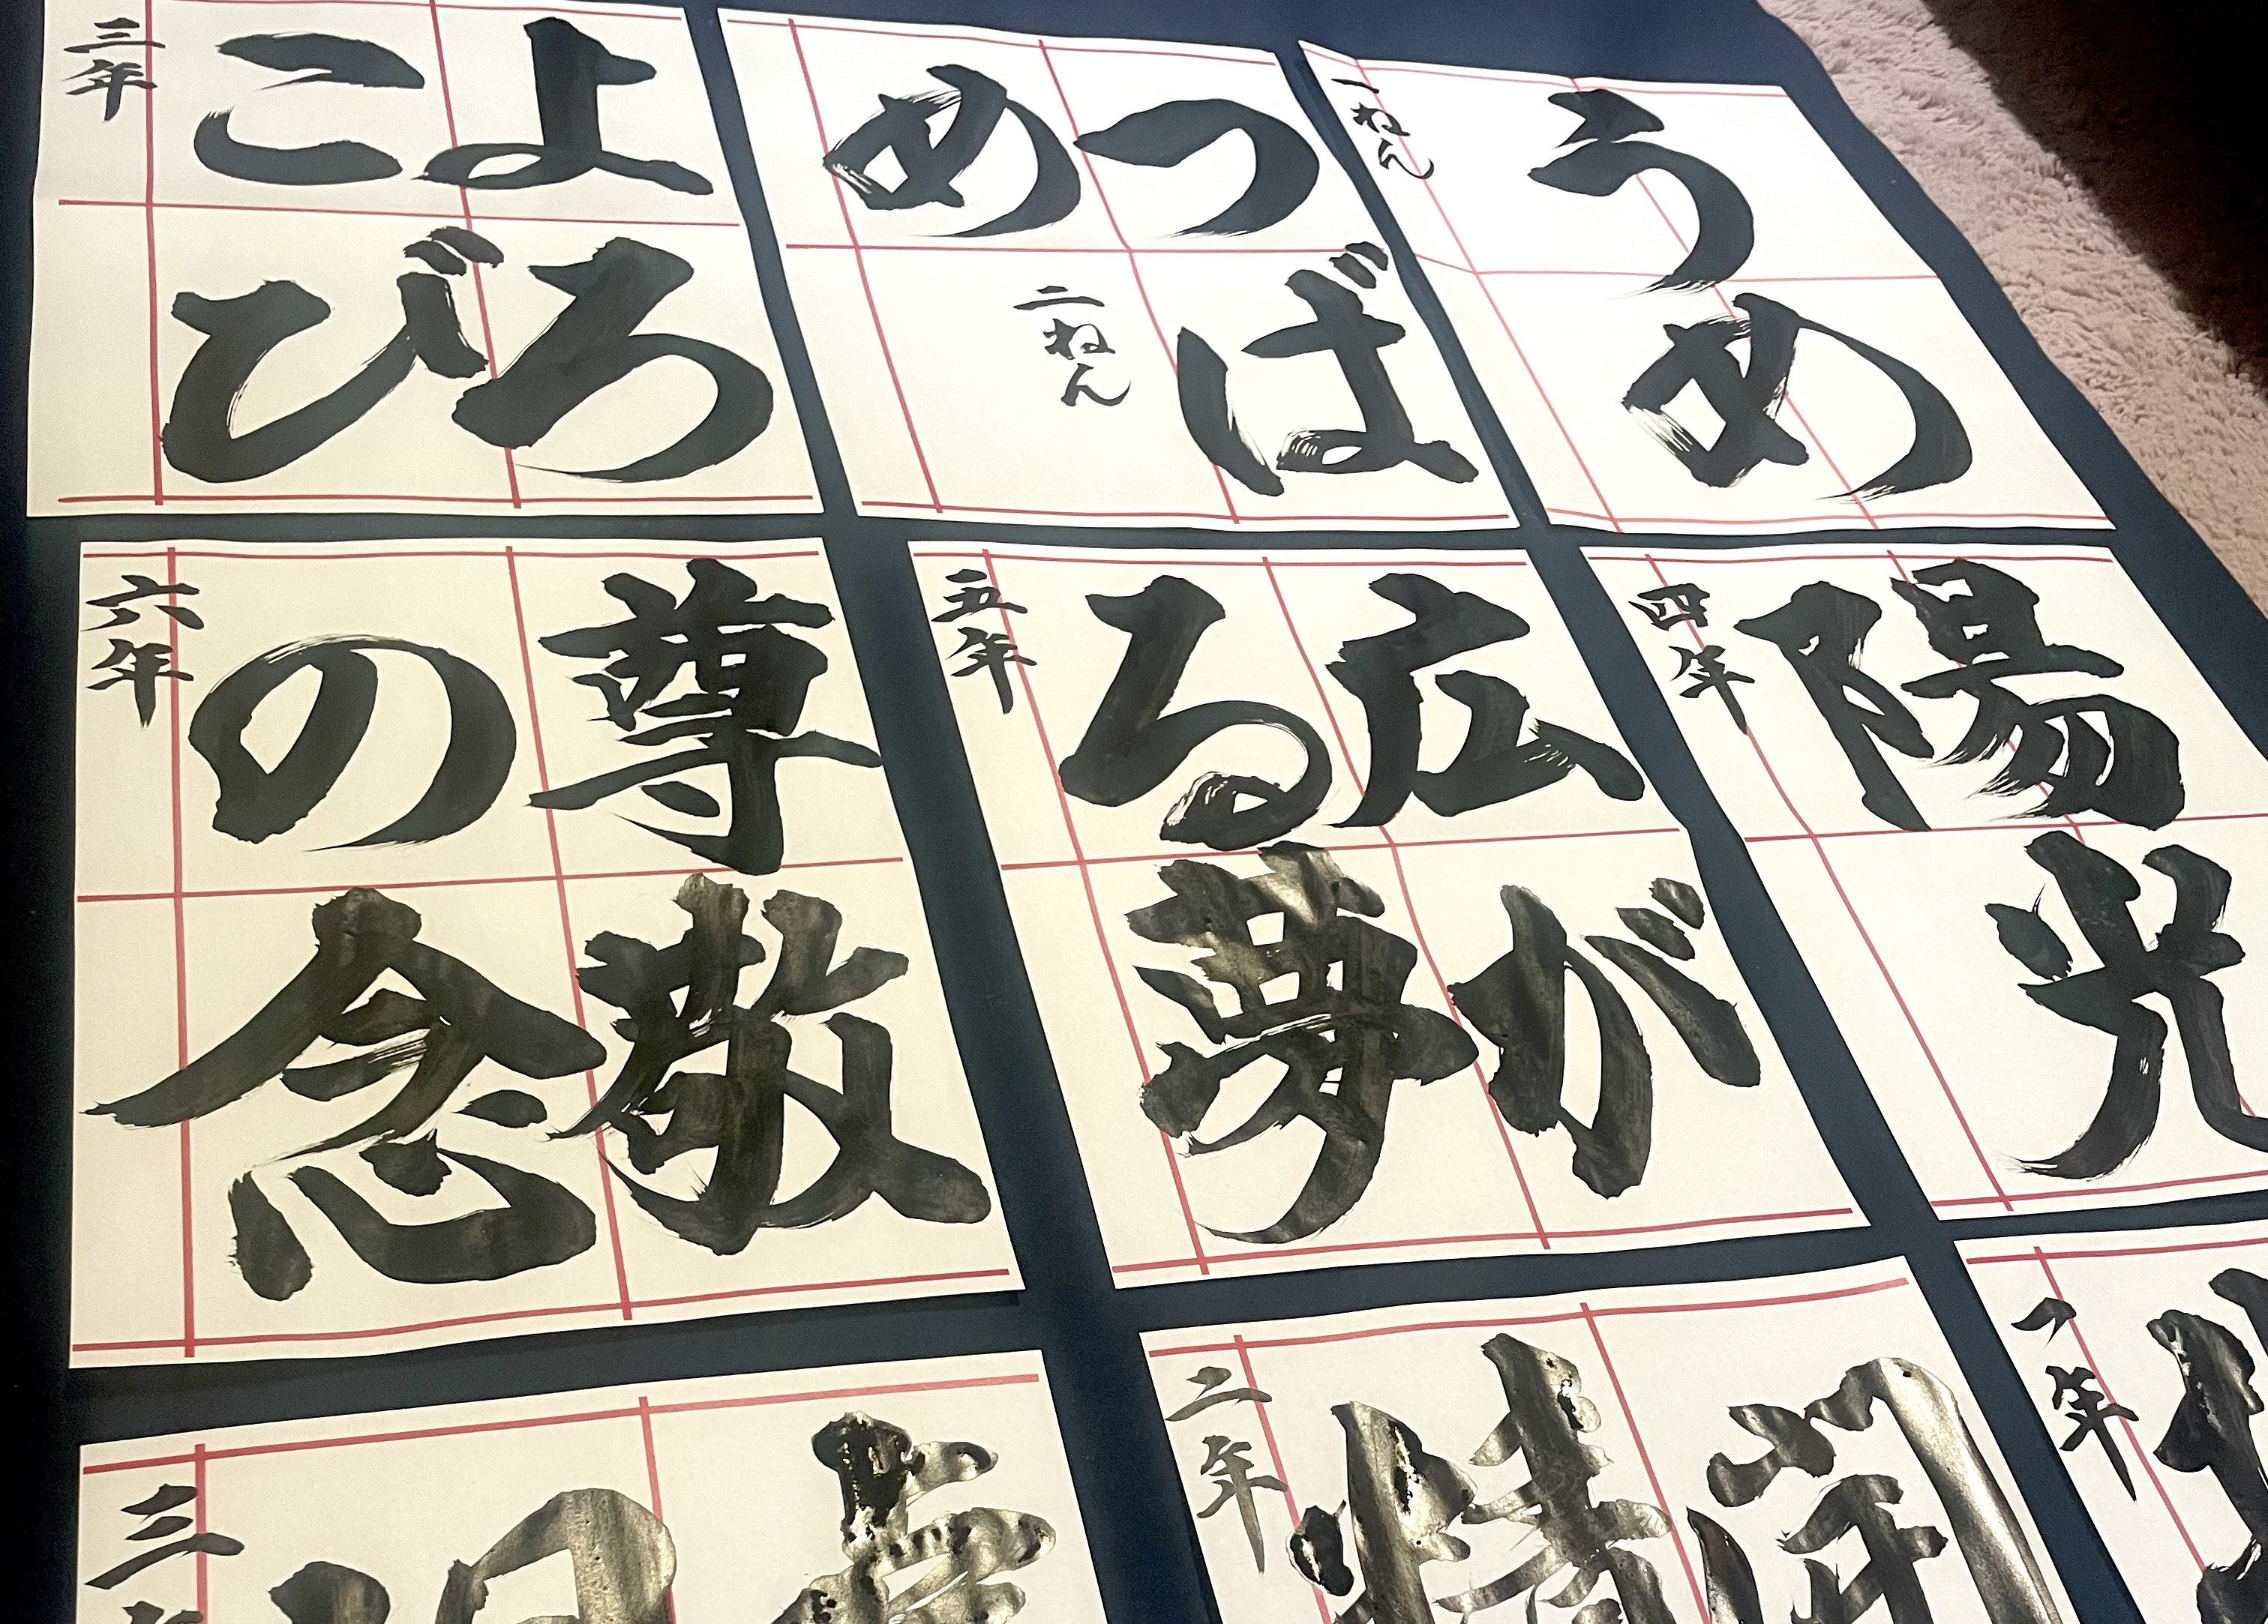 うめ
一ねん
つば
め
二ねん
よろ
こび
三年
陽光
四年
広が
る夢
五年
尊敬
の念
六年
一年
二年
三